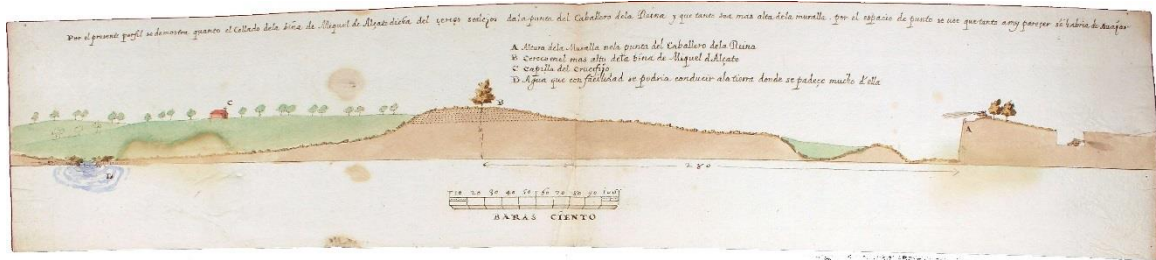 Por el presente perfil se demostra, quanto el Collado dela bina de Miquel de Alçato dicha del çerezo sea lejos dela punta del Caballero dela Reina y que tanto sea mas alta dela muralla, por el espacio de punto se uee que tanto a my pareçer se habria de
A Altura dela Muralla nela punta del Caballero dela Reina
B Cerezo nel mas alto dela bina de Miquel d'Alçato
C Capilla del Crucifijo
D Agua que con facilidad se podria conducir ala tierra donde se padeçe mucho d'ella
C
B
A
D
280
10 20 30 40 50 60 70 80 90 100
BARAS CIENTO